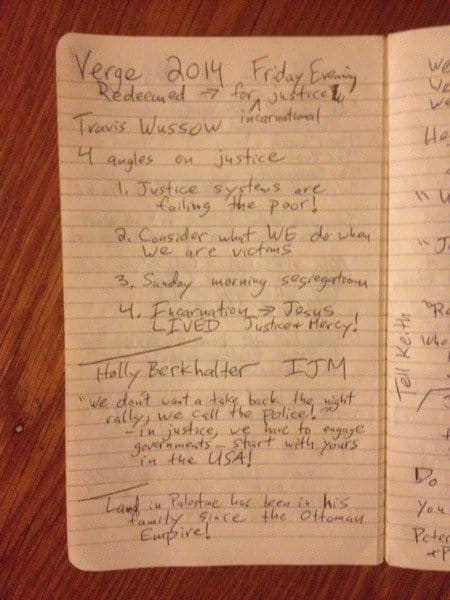 Verge 2014 Friday Evening
Redeemed → for ^ justice
incarnational
Travis Wussow
4 angles on justice
1. Justice systems are
failing the poor!
2. Consider what WE do when
we are victims
3. Sunday morning segregation
4. Incarnation → Jesus
LIVED Justice + Mercy!
Holly Berkhalter IJM
"we don't want a take back the night
rally, we call the police!"
- In justice, we have to engage
governments - start with yours
in the USA!
Land in Palestine has been in his
family since the Ottoman
Empire!
Tell Keith
Do
You
Peter
+P